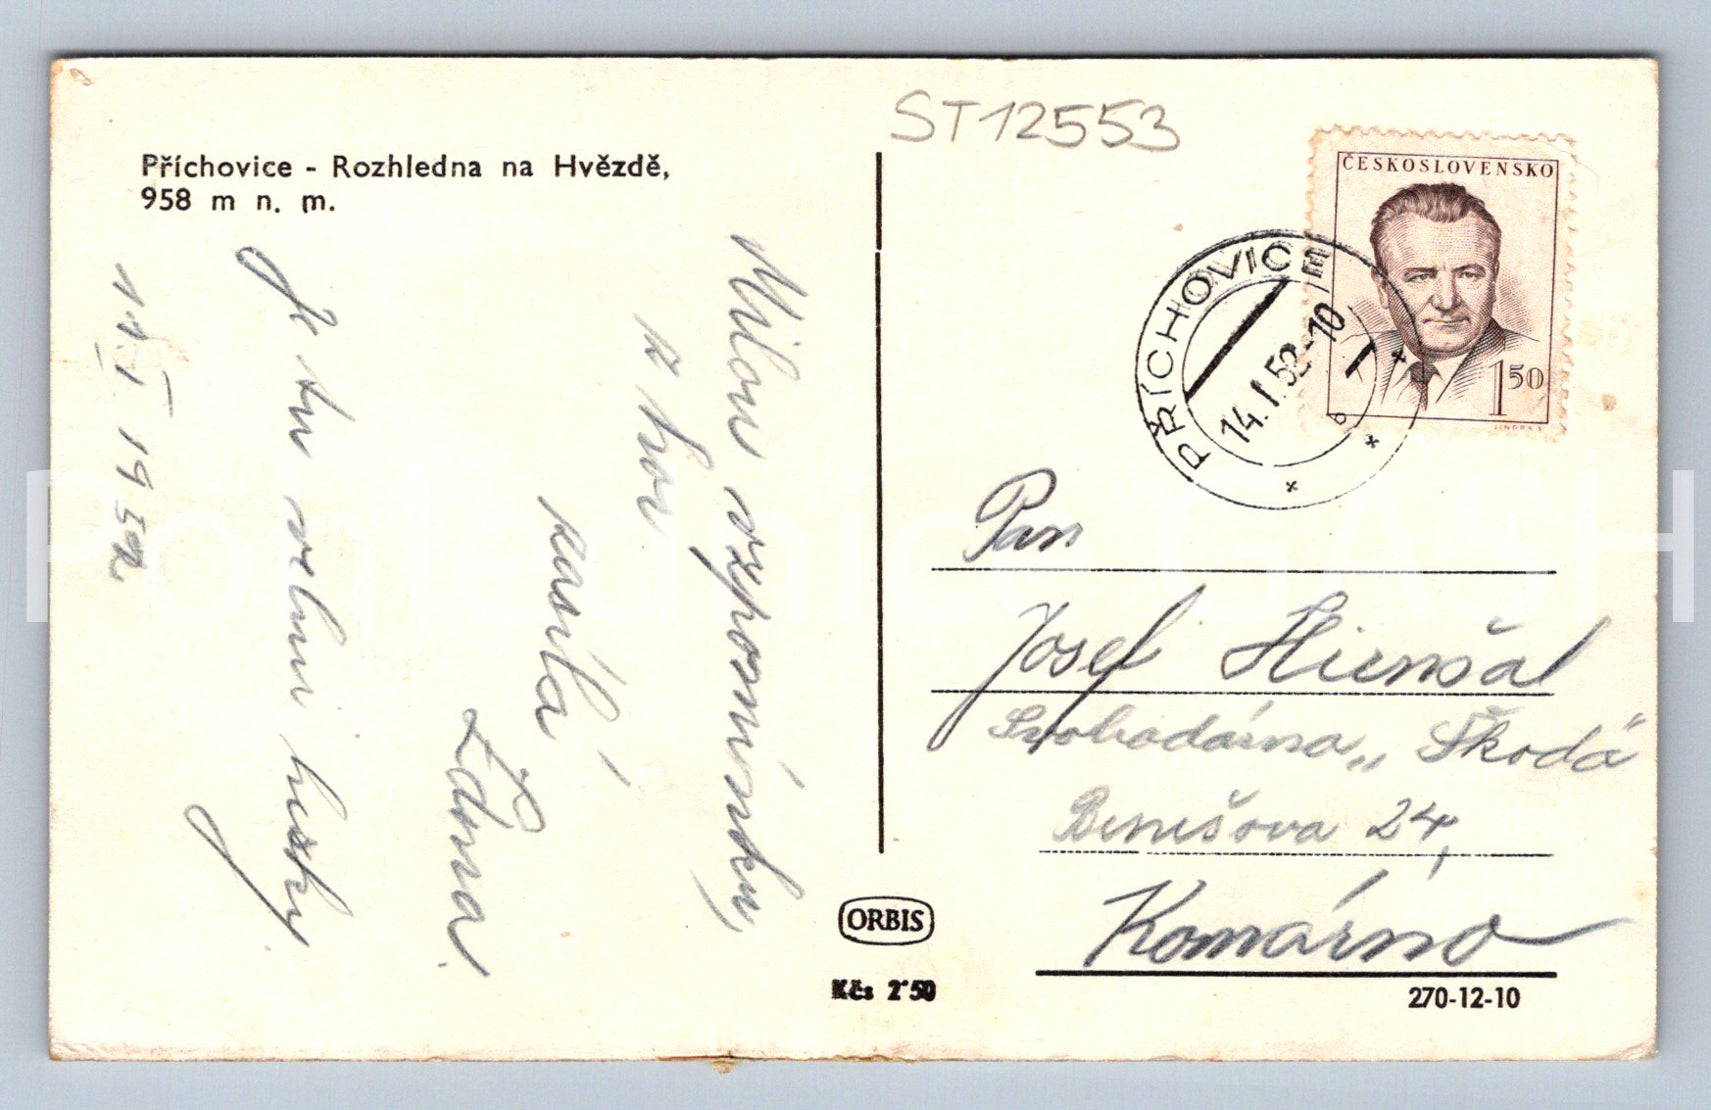 ST12553
Příchovice - Rozhledna na Hvězdě,
958 m n. m.
Milou vzpomínku,
z hor
zasílá
Zdena.
Je tu velmi hezky
11. I. 1952
ČESKOSLOVENSKO
1 50
PŘÍCHOVICE
14.I.52-10
b
Pan
Josef Hienšal
Svobodárna „Škodá
Benešova 24,
Komárno
ORBIS
Kčs 2˙50
270-12-10